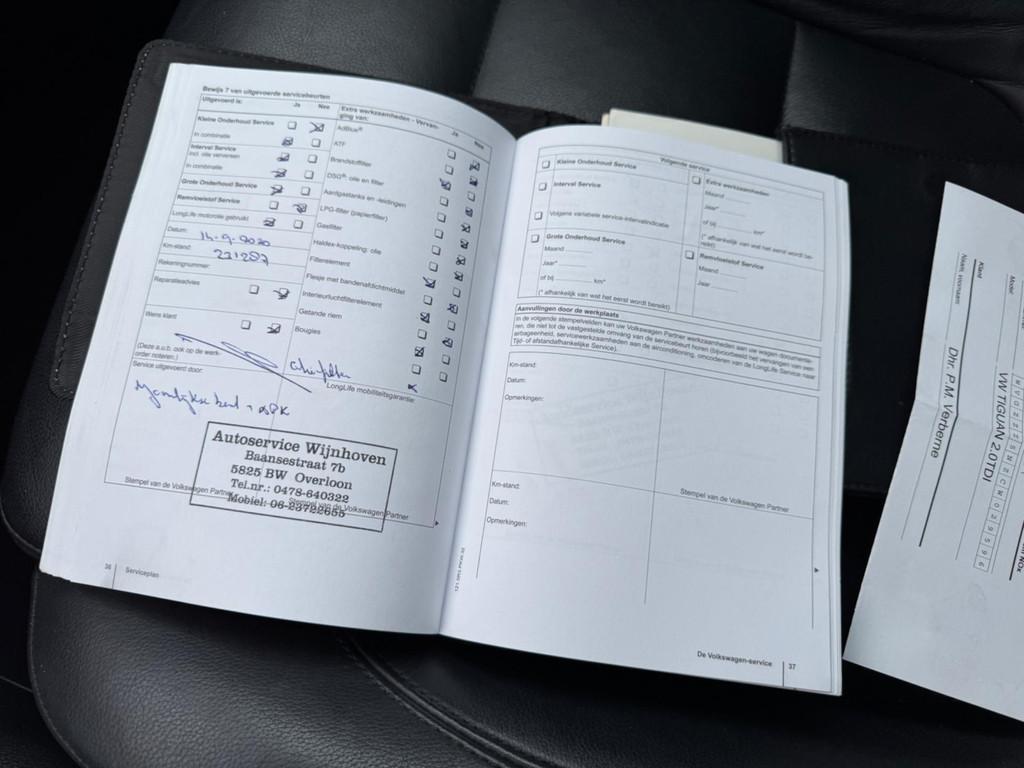 Bewijs 7 van uitgevoerde servicebeurten
Uitgevoerd is: Ja Nee
Kleine Onderhoud Service
In combinatie
Interval Service
incl. olie verversen
In combinatie
Grote Onderhoud Service
Remvloeistof Service
LongLife motorolie gebruikt
Datum: 14-9-2020
Km-stand: 231287
Rekeningnummer:
Reparatieadvies
Wens klant
(Deze a.u.b. ook op de werk-
order noteren.)
Service uitgevoerd door:
Extra werkzaamheden - Vervan-
ging van: Ja Nee
AdBlue®
ATF
Brandstoffilter
DSG®: olie en filter
Aardgastanks en -leidingen
LPG-filter (papierfilter)
Gasfilter
Haldex-koppeling: olie
Filterelement
Flesje met bandenafdichtmiddel
Interieurluchtfilterelement
Getande riem
Bougies
LongLife mobiliteitsgarantie:
Autoservice Wijnhoven
Baansestraat 7b
5825 BW Overloon
Tel.nr.: 0478-640322
Mobiel: 06-23722655
Stempel van de Volkswagen Partner
Stempel van de Volkswagen Partner
36 Serviceplan
Volgende service
Kleine Onderhoud Service
Interval Service
Volgens variabele service-intervalindicatie
Grote Onderhoud Service
Maand
Jaar*
of bij km*
(* afhankelijk van wat het eerst wordt bereikt)
Extra werkzaamheden
Maand
Jaar*
of bij km*
(* afhankelijk van wat het eerst wordt be-
reikt)
Remvloeistof Service
Maand
Jaar
Aanvullingen door de werkplaats
In de volgende stempelvelden kan uw Volkswagen Partner werkzaamheden aan uw wagen documente-
ren, die niet tot de vastgestelde omvang van de servicebeurt horen (bijvoorbeeld het vervangen van een
airbageenheid, servicewerkzaamheden aan de airconditioning, omcoderen van de LongLife Service naar
Tijd- of afstandafhankelijke Service).
Km-stand:
Datum:
Opmerkingen:
Km-stand:
Datum:
Opmerkingen:
Stempel van de Volkswagen Partner
De Volkswagen-service 37
Model
VW TIGUAN 2.0TDI
Klant
Naam, voornaam
Dhr. P.M. Verberne